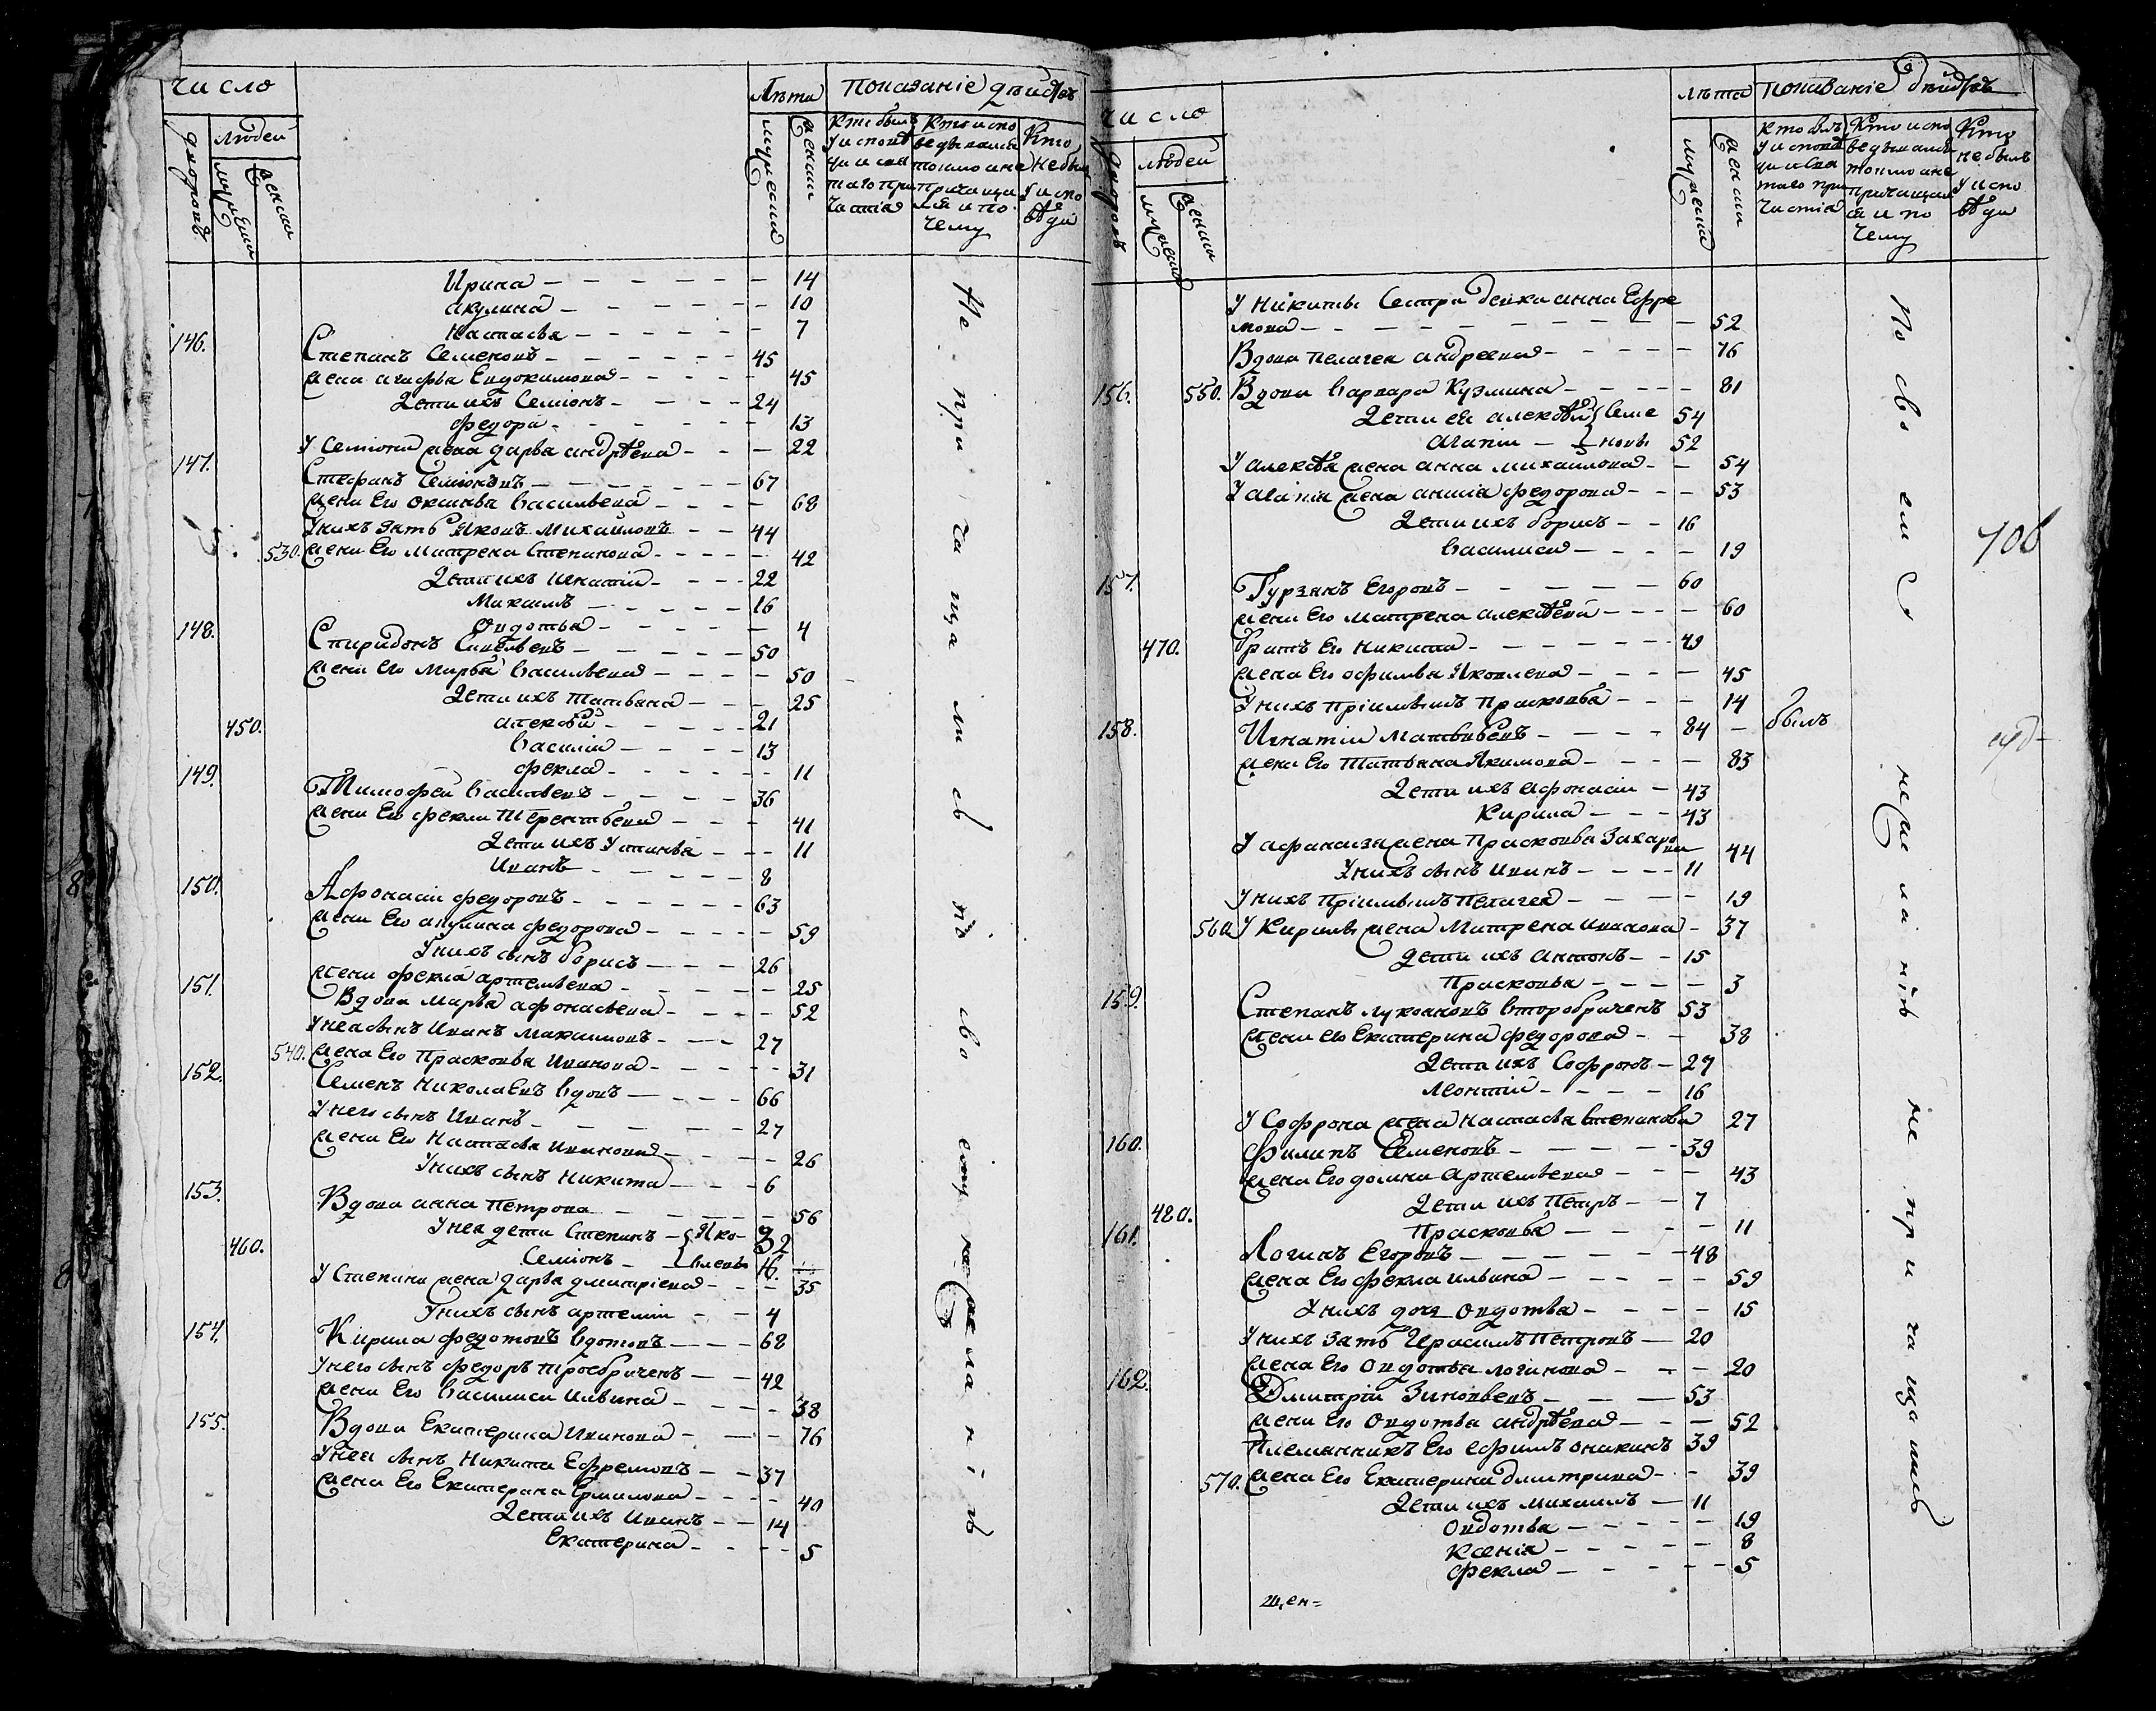 число
людей
дворовъ
мужеска
женска
Лѣта
мужеска
женска
показаніе дѣйства
Кто былъ у исповеди и святаго причастія
Кто исповедывался токмо а не причащался и почему
Кто не был у исповѣди
Ирина — 14
акулина — 10
Настасья — 7
146. Степанъ Семеновъ — 45
жена агафья Евдокимова — 45
Дети ихъ Семіонъ — 24
федора — 13
У Семіона жена дарья андрѣева — 22
147. Стефанъ Семіоновъ — 67
жена Его оксинья васильева — 68
У нихъ зять Яковъ Михаиловъ — 44
530. жена Его Матрена Степанова — 42
Дети ихъ Игнатій — 22
Максимъ — 16
Овдотья — 4
148. Спиридонъ Савѣльевъ — 50
жена Его Марѳа васильева — 50
Дети ихъ Татьяна — 25
450. алексѣй — 21
василій — 13
фекла — 11
149. Тимофей васильевъ — 36
жена Его фекла Терентьева — 41
Дети ихъ Устинья — 11
Иванъ — 8
150. Афонасій федоровъ — 63
жена Его акулина федорова — 59
У нихъ сынъ борисъ — 26
жена фекла артемьева — 25
151. Вдова марья афонасьева — 52
У нея сынъ Иванъ Максимовъ — 27
540. жена Его Прасковья Иванова — 31
152. Семенъ Николаевъ вдовъ — 66
У него сынъ Иванъ — 27
жена Его Настасья Иванова — 26
У нихъ сынъ Никита — 6
153. Вдова анна Петрова — 56
У нея дети Степанъ — Яко- 32
460. Семіонъ — влевы 16.
У Степана жена дарья дмитріева — 35
У нихъ сынъ артемій — 4
154. Кирила федотовъ вдовъ — 68
У него сынъ федоръ троебраченъ — 42
жена Его василиса Ильина — 38
155. Вдова Екатерина Иванова — 76
У нея сынъ Никита Ефремовъ — 37
жена Его Екатерина Ермилова — 40
Дети ихъ Иванъ — 14
Екатерина — 5
Не причащались по своему нежеланію
число
дворовъ
людей
мужеска
женска
лѣта
мужеска
женска
показаніе дѣйства
Кто былъ у исповеди и святаго причастія
Кто исповедывался токмо а не причащался и почему
Кто не былъ у исповѣди
У Никиты Сестра девка анна Ефре
мова — 52
Вдова пелагея андреева — 76
156. 550. Вдова варвара Кузмина — 81
Дети ея алексѣй Семе 54
агапій — новы 52
У алексѣя жена анна михаилова — 54
У агапія жена анисія федорова — 53
Дети ихъ борисъ — 16
василиса — 19
157. Гурзанъ Егоровъ — 60
жена Его матрена алексѣева — 60
470. братъ Его Никита — 49
жена Его офимья Яковлева — 45
У нихъ пріимышъ Прасковья — 14
158. Игнатій Матвѣевъ — 84 — былъ
жена Его Татьяна Якимова — 83
Дети ихъ афонасій — 43
Кирила — 43
У афанасья жена Прасковья Захаро
ва 44
У нихъ сынъ Иванъ — 11
У нихъ пріимышъ Пелагея — 19
560. У Кирилы жена Матрена Иванова — 37
дети ихъ антонъ — 15
Прасковья — 3
159. Степанъ лукояновъ второбраченъ 53
жена его Екатерина федорова — 38
Дети ихъ Софронъ — 27
Леонтій — 16
У Софрона жена Настасья Степанова 27
160. Филипъ Семеновъ — 39
жена Его домна Артемьева — 43
480. Дети ихъ Петръ — 7
Прасковья — 11
161. Логинъ Егоровъ — 48
жена Его фекла ильина — 59
У нихъ дочь овдотья — 15
У нихъ зать Герасимъ Петровъ — 20
жена Его Овдотья логинова — 20
162. Дмитрій Зиновьевъ — 53
жена Его Овдотья андрѣева — 52
племянникъ Его ефимъ аникинъ 39
570. жена Его Екатерина дмитрива — 39
Дети ихъ михаилъ — 11
овдотья — 19
Ксенія — 8
фекла — 5
По своему нежеланію не причащались
706